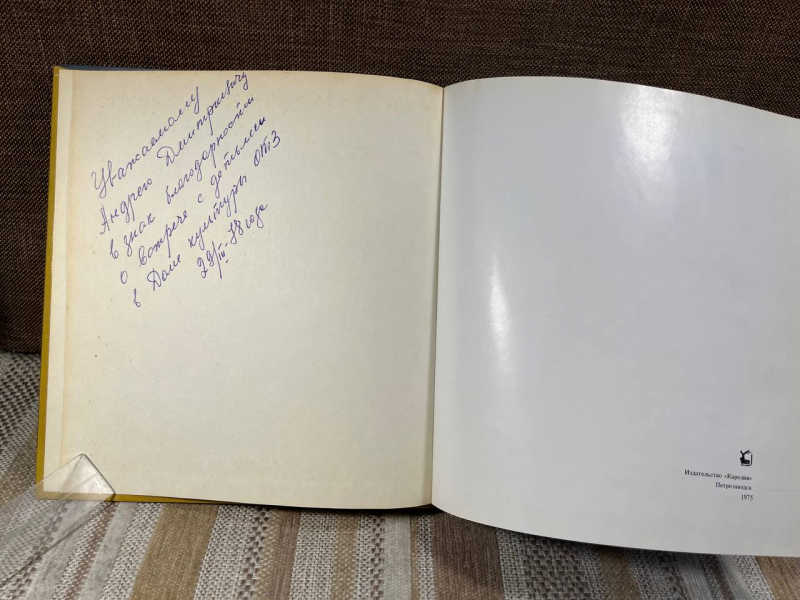 Уважаемому
Андрею Дмитриевичу
в знак благодарности
о встрече с детьми
в Доме культуры ОТЗ
29/III-78 года
Издательство «Карелия»
Петрозаводск
1975